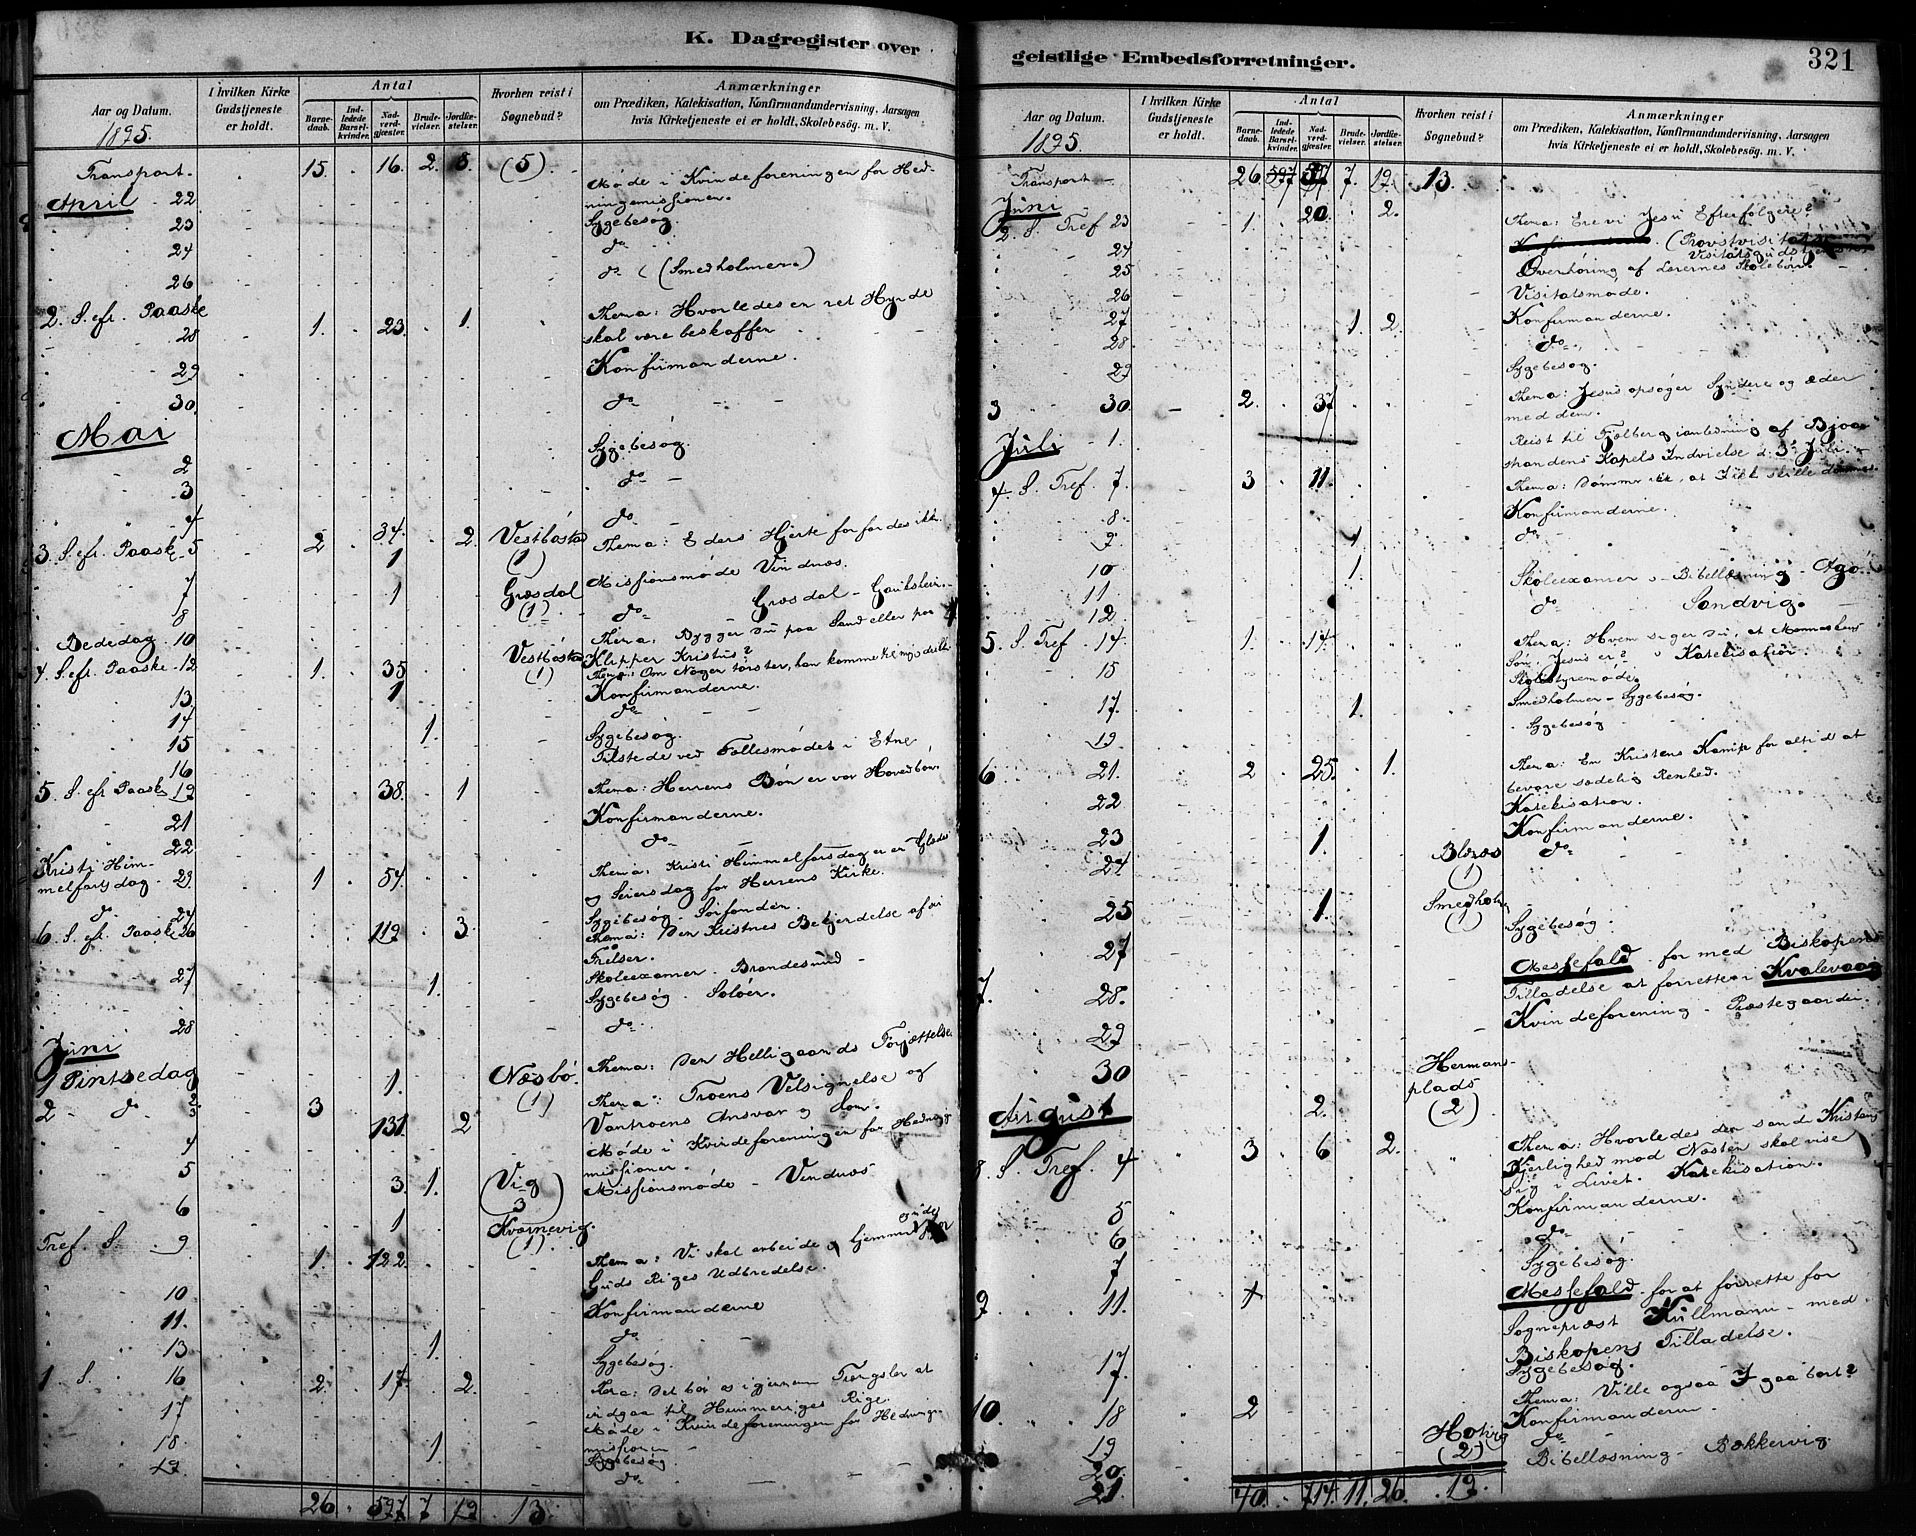 K. Dagregister over
Aar og Datum.
1895.
I hvilken Kirke Gudstjeneste er holdt.
Antal
Barnedaab.
Indledede Barselkvinder.
Nadverdgjæster.
Brudevielser.
Jordfæstelser.
Hvorhen reist i Sognebud?
Anmærkninger
om Prædiken, Katekisation, Konfirmandundervisning, Aarsagen
hvis Kirketjeneste ei er holdt, Skolebesøg. m. V.
Transport. 15. 16. 2. 8. (5)
April 22 Møde i Kvindeforeningen for Hedningemissionen.
23 Sygebesøg.
24 do
26 do (Smedholmen)
2. S. eft. Paaske 28 1. 23. 1. Thema: Hvorledes en ret Hyrde
skal være beskaffen
29 Konfirmanderne.
30. do
Mai
2 Sygebesøg.
3 do
4 do
3. S. eft. Paaske 5 2 34. 1 2. Vestbøstad (1) Thema: Eders Hjerte forfærdes ikke.
7 1 Græsdal (1) Missionsmøde Vindnæs.
8 do Græsdal - Gauksheim
Bededag 10 Thema: Bygger Du paa Sand eller paa
Klippen Kristus?
4. S. eft. Paaske 12 1. 35 Vestbøstad (1) Thema: Om Nogen tørster, han komme til mig og drikke
13 1 Konfirmanderne.
14 do
15 1. Sygebesøg.
16 Tilstede ved Fællesmødet i Etne
5. S. eft. Paaske 19 38. 1 Thema: Herrens Bøn er vor Hovedbøn.
21 Konfirmanderne.
22 do
Kristi Himmelfartsdag 23 1 54. Thema: Kristi Himmelfartsdag er en Glædes
og Seiersdag for Herrens Kirke.
do. 24 Sygebesøg.
6. S. eft. Paaske 26 119 3. Thema: Den Kristnes Bekjendelse af sin
Frelser.
27 1. Skoleexamen. Brandesund
Sygebesøg
28 do.
Juni
1 Pintsedag 2 1. Næsbø. (1) Thema: Den Helligaands Forjættelse
2 do 3 3 131. 2 Thema: Troens Velsignelse og
Vantroens Ansvar og Dom.
4 Møde i Kvindeforeningen for Hedningemissionen.
5 3. 1. Vig 3 Missionsmøde - Vindnæs
6 1 Kværnevig. (1).
Tref. S. 9 1. 122. Thema: Vi skal arbeide
Guds Riges Udbredelse.
10 Konfirmanderne
11. do
13 1. Sygebesøg.
1 S. 16 2. 17 2. Thema: Det bør os igjennem Trængsler at
indgaa til Himmeriges Rige
17 Møde i Kvindeforeningen for Hedningemissionen
18. 1 Sygebesøg
19 do
26 597 7 19 13.
geistlige Embedsforretninger.
321
Aar og Datum.
1895.
I hvilken Kirke Gudstjeneste er holdt.
Antal
Barnedaab.
Indledede Barselkvinder.
Nadverdgjæster.
Brudevielser.
Jordfæstelser.
Hvorhen reist i Sognebud?
Anmærkninger
om Prædiken, Katekisation, Konfirmandundervisning, Aarsagen
hvis Kirketjeneste ei er holdt, Skolebesøg. m. V.
Transport 26 597 597 7. 19. 13.
Juni
2. S. Tref 23 1. 20. 2. Thema: Ere vi Jesu Efterfølgere?
(Provstvisitats
Visitatsgudstjeneste
24 Overhøring af Lærernes Skolebørn.
25 Visitatsmøde.
26 Konfirmanderne.
27 1. 2. do.
28 Sygebesøg.
29
3 30. 2. 37 Thema: Jesus opsøger Syndere og æder
med dem.
Juli 1. Reist til Fjelberg i anledning af
Kapels Indvielse d. 3. Juli.
4. S. Tref. 7. 3 11. Thema: Dømmer ikke, at I ikke skulle dømmes.
8 Konfirmanderne.
9. 1 do
10 1. Skoleexamen - Bibellæsning - Ago
11 do Sandvig.
12
5. S. Tref. 14 1. 14. Thema: Hvem siger Du, at Menneskens
Søn Jesus er? Katekisation.
15 Skolestyremøde.
17. 1. Smedholmen - Sygebesøg.
19 Sygebesøg
6 21. 2 25. 1. Thema: En Kristens Kamp for altid at
bevare sædelig Renhed.
Katekisation.
22 Konfirmanderne.
23 1. do
24 (1)
25 1. Smedholmen (1) Sygebesøg.
27
7. 28. Messefald for med Biskopens
Tilladelse at forrette i Kvalevaag
29 Kvindeforening - Præstegaarden.
30
August 2. Hermanplads (2)
8. S. Tref. 4 3 6 2. Thema: Hvorledes den sande Kristens
Kjærlighed mod Næsten skal vise
sig i Livet. Katekisation.
5 Konfirmanderne.
6 do
7 Sygebesøg.
9 11. 1 Messefald for at forrette for
Sognepræst Killmann med
Biskopens Tilladelse.
17. Sygebesøg.
10. 18 2 Thema: Ville ogsaa I gaa bort?
19 Konfirmanderne
20. (2) do
21 Bibellæsning - Bækkervig.
40. 714. 11. 26. 19.